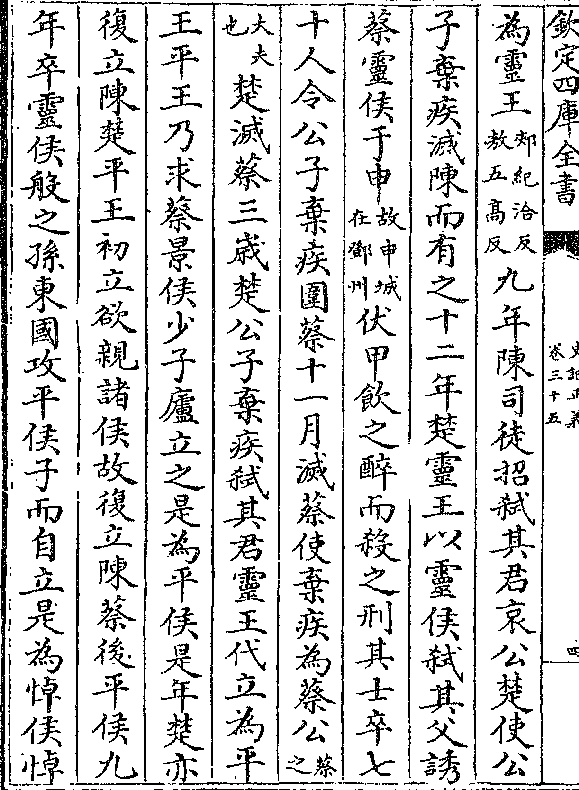 欽定四庫全書
史記正義
卷三十五
四
為靈王郟紀洽反敖五高反九年陳司徒招弑其君哀公楚使公
子棄疾滅陳而有之十二年楚靈王以靈侯弑其父誘
蔡靈侯于申故申城在鄧州伏甲飲之醉而殺之刑其士卒七
十人令公子棄疾圍蔡十一月滅蔡使棄疾為蔡公蔡之
大夫也楚滅蔡三歲楚公子棄疾弑其君靈王代立為平
王平王乃求蔡景侯少子廬立之是為平侯是年楚亦
復立陳楚平王初立欲親諸侯故復立陳蔡後平侯九
年卒靈侯般之孫東國攻平侯子而自立是為悼侯悼